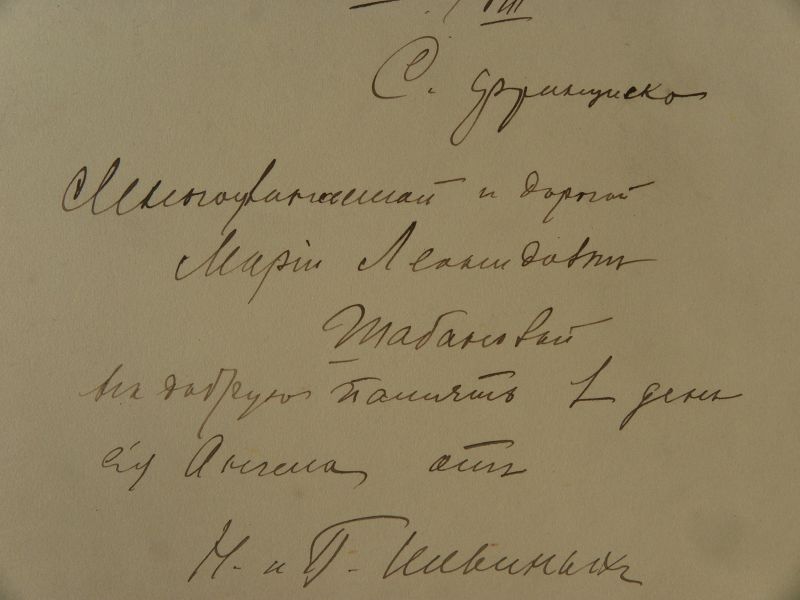 VIII
С. Франциско
Многоуважаемой и дорогой
Маріи Леонидовнѣ
Шабановой
на добрую память въ день
ея Ангела отъ
Н. и П. Ильиныхъ